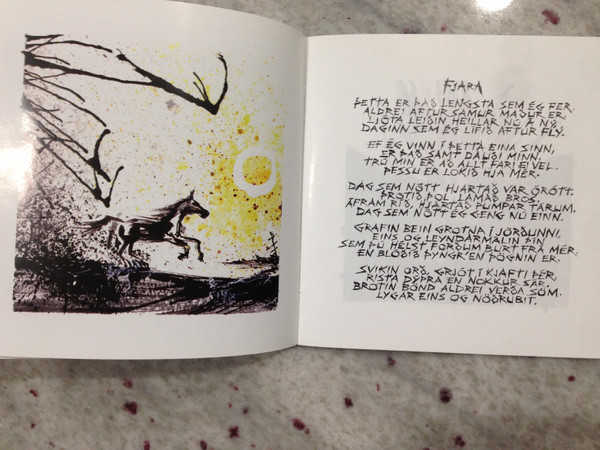 FJARA
ÞETTA ER ÞAÐ LENGSTA SEM ÉG FER.
ALDREI AFTUR SAMUR MAÐUR ER.
LJÓTA LEIÐIN HEILLAR NÚ Á NÝ.
DAGINN SEM ÉG LÍFIÐ AFTUR FLÝ.
EF ÉG VINN Í ÞETTA EINA SINN,
ER ÞAÐ SAMT DAUÐI MINN.
TRÚ MÍN ER AÐ ALLT FARI EI VEL.
ÞESSU ER LOKIÐ HJÁ MÉR.
DAG SEM NÓTT HJARTAÐ VAR ÓRÓTT.
ÞROTIÐ ÞOL LAMAÐ BROS.
ÁFRAM RÍÐ, HJARTAÐ PUMPAR TÁRUM.
DAG SEM NÓTT ÉG GENG NÚ EINN.
GRAFIN BEIN GROTNA Í JÖRÐUNNI,
EINS OG LEYNDARMÁLIN ÞÍN
SEM ÞÚ HELST FORÐUM BURT FRÁ MÉR.
EN BLÓÐIÐ ÞYNGR'EN ÞÖGNIN ER.
SVIKIN ORÐ, GRJÓT Í KJAFTI ÞÉR,
RISTA DÝPRA EN NOKKUR SÁR.
BROTIN BÖND ALDREI VERÐA SÖM.
LYGAR EINS OG NÖÐRUBIT.